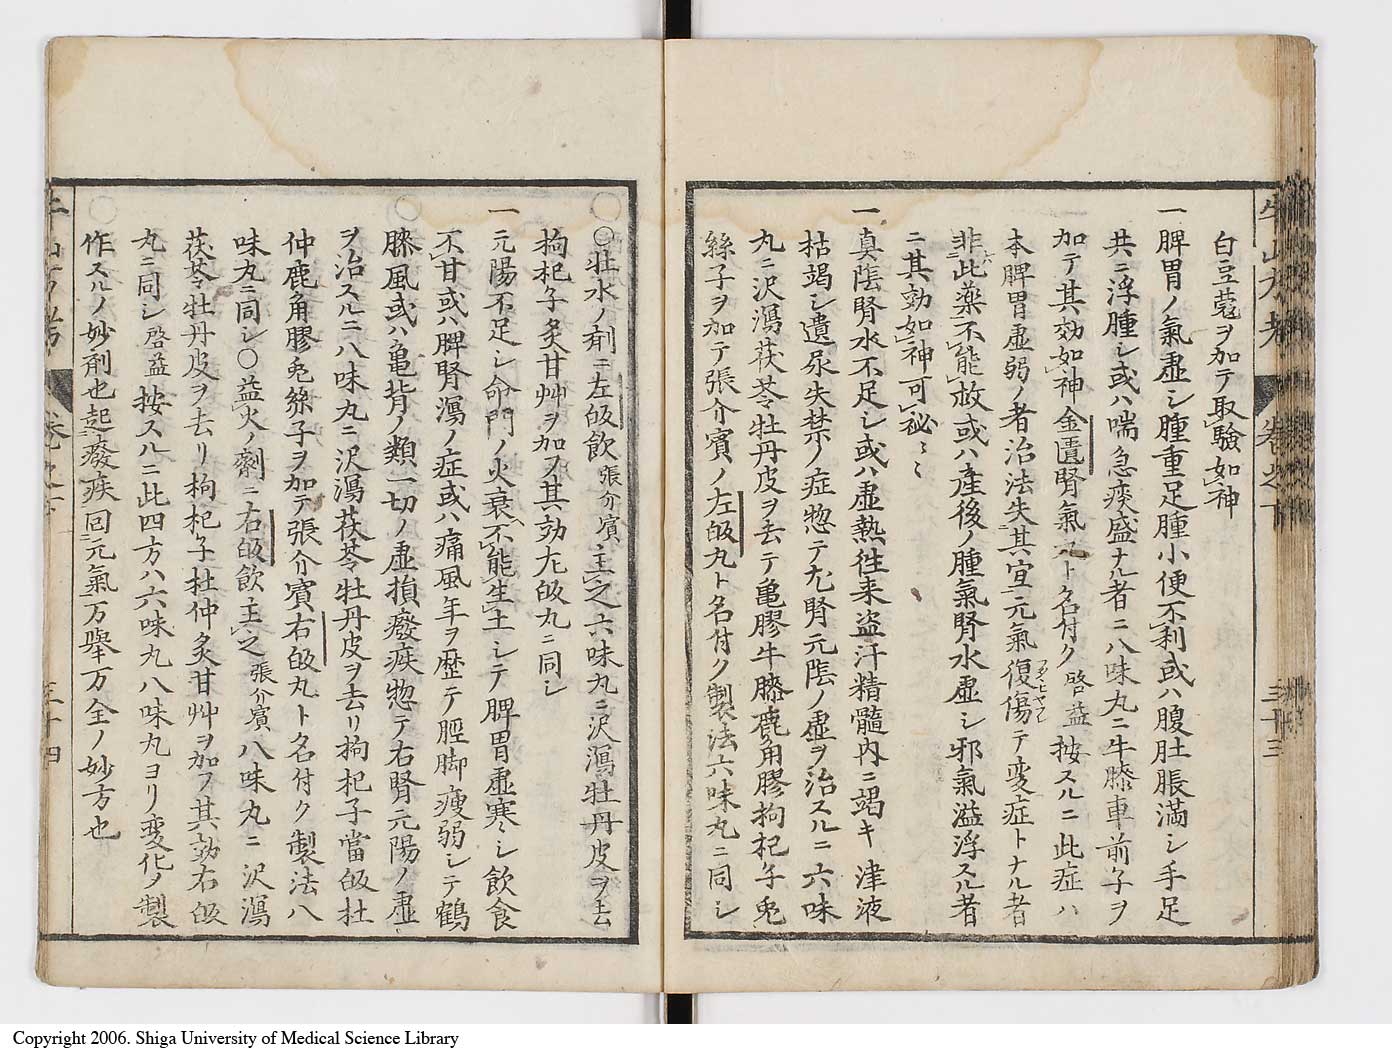 白豆蔲ヲ加テ取驗如神
一脾胃ノ氣虚シ腫重足腫小便不利或ハ腹肚脹満シ手足
共ニ浮腫シ或ハ喘急痰盛ナル者ニ八味丸ニ牛膝車前子ヲ
加テ其効如神金匱腎氣丸ト名付ク啓益按スルニ此症ハ
本脾胃虚弱ノ者治法失其宜元氣復傷テ変症トナル者
非此薬不能故或ハ産後ノ腫氣腎水虚シ邪氣溢浮スル者
ニ其効如神可秘〻〻
一真陰腎水不足シ或ハ虚熱徃来盗汗精髓内ニ竭キ津液
枯竭シ遺尿失禁ノ症惣テ尢腎元陰ノ虚ヲ治スルニ六味
丸ニ沢瀉茯苓牡丹皮ヲ去テ亀膠牛膝鹿角膠拘杞子兎
絲子ヲ加テ張介賓ノ左皈丸ト名付ク製法六味丸ニ同シ
○壮水ノ剤ニ左皈飲張介賓主之六味丸ニ沢瀉牡丹皮ヲ去
拘杞子炙甘艸ヲ加フ其効左皈丸ニ同シ
一元陽不足シ命門ノ火衰不能生土シテ脾胃虚寒シ飲食
不甘或ハ脾腎瀉ノ症或ハ痛風年ヲ歴テ脛脚痩弱シテ鶴
膝風或ハ亀背ノ類一切ノ虚損癈疾惣テ右腎元陽ノ虚
ヲ治スルニ八味丸ニ沢瀉茯苓牡丹皮ヲ去リ拘杞子當皈杜
仲鹿角膠兎絲子ヲ加テ張介賓右皈丸ト名付ク製法八
味丸ニ同シ○益火ノ劑ニ右皈飲主之張介賓八味丸ニ沢瀉
茯苓牡丹皮ヲ去リ拘杞子杜仲炙甘艸ヲ加フ其効右皈
丸ニ同シ啓益按スルニ此四方ハ六味丸八味丸ヨリ変化ノ製
作スルノ妙剤也起癈疾回元氣万舉万全ノ妙方也
Copyright 2006. Shiga University of Medical Science Library